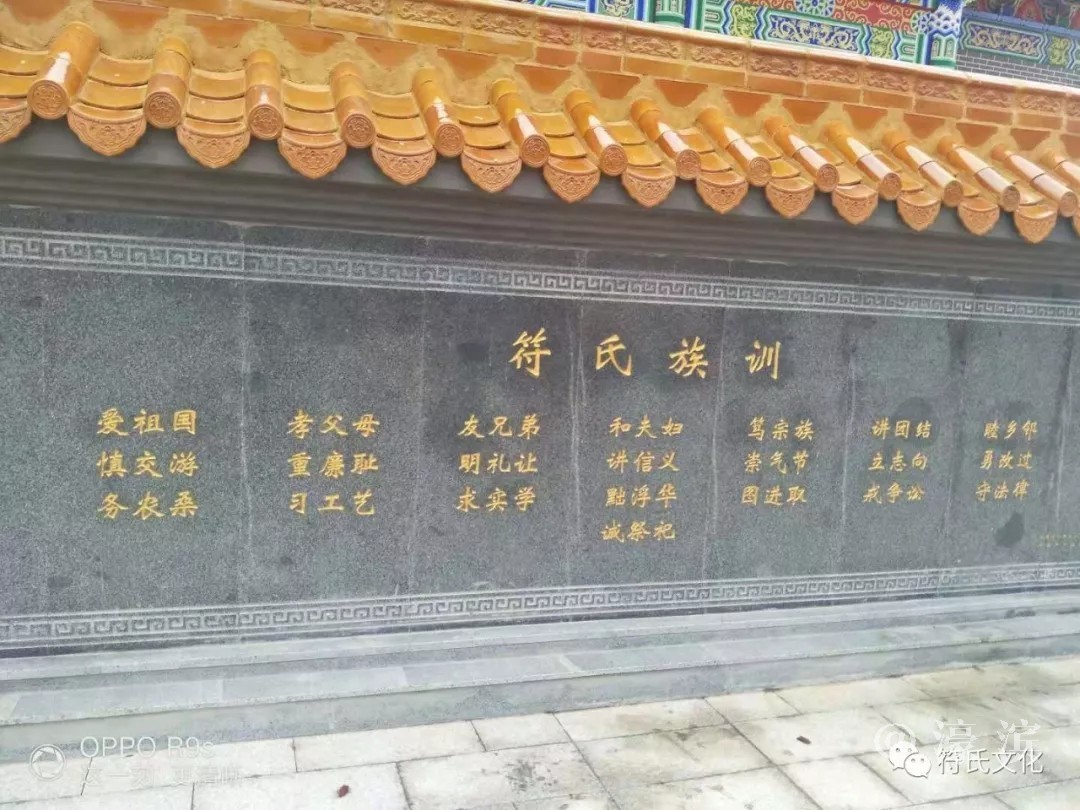 符氏族训
爱祖国 孝父母 友兄弟 和夫妇 笃宗族 讲团结 睦乡邻
慎交游 重廉耻 明礼让 讲信义 崇气节 立志向 勇改过
务农桑 习工艺 求实学 黜浮华 图进取 戒争讼 守法律
诚祭祀
OPPO R9s
濠滨
符氏文化